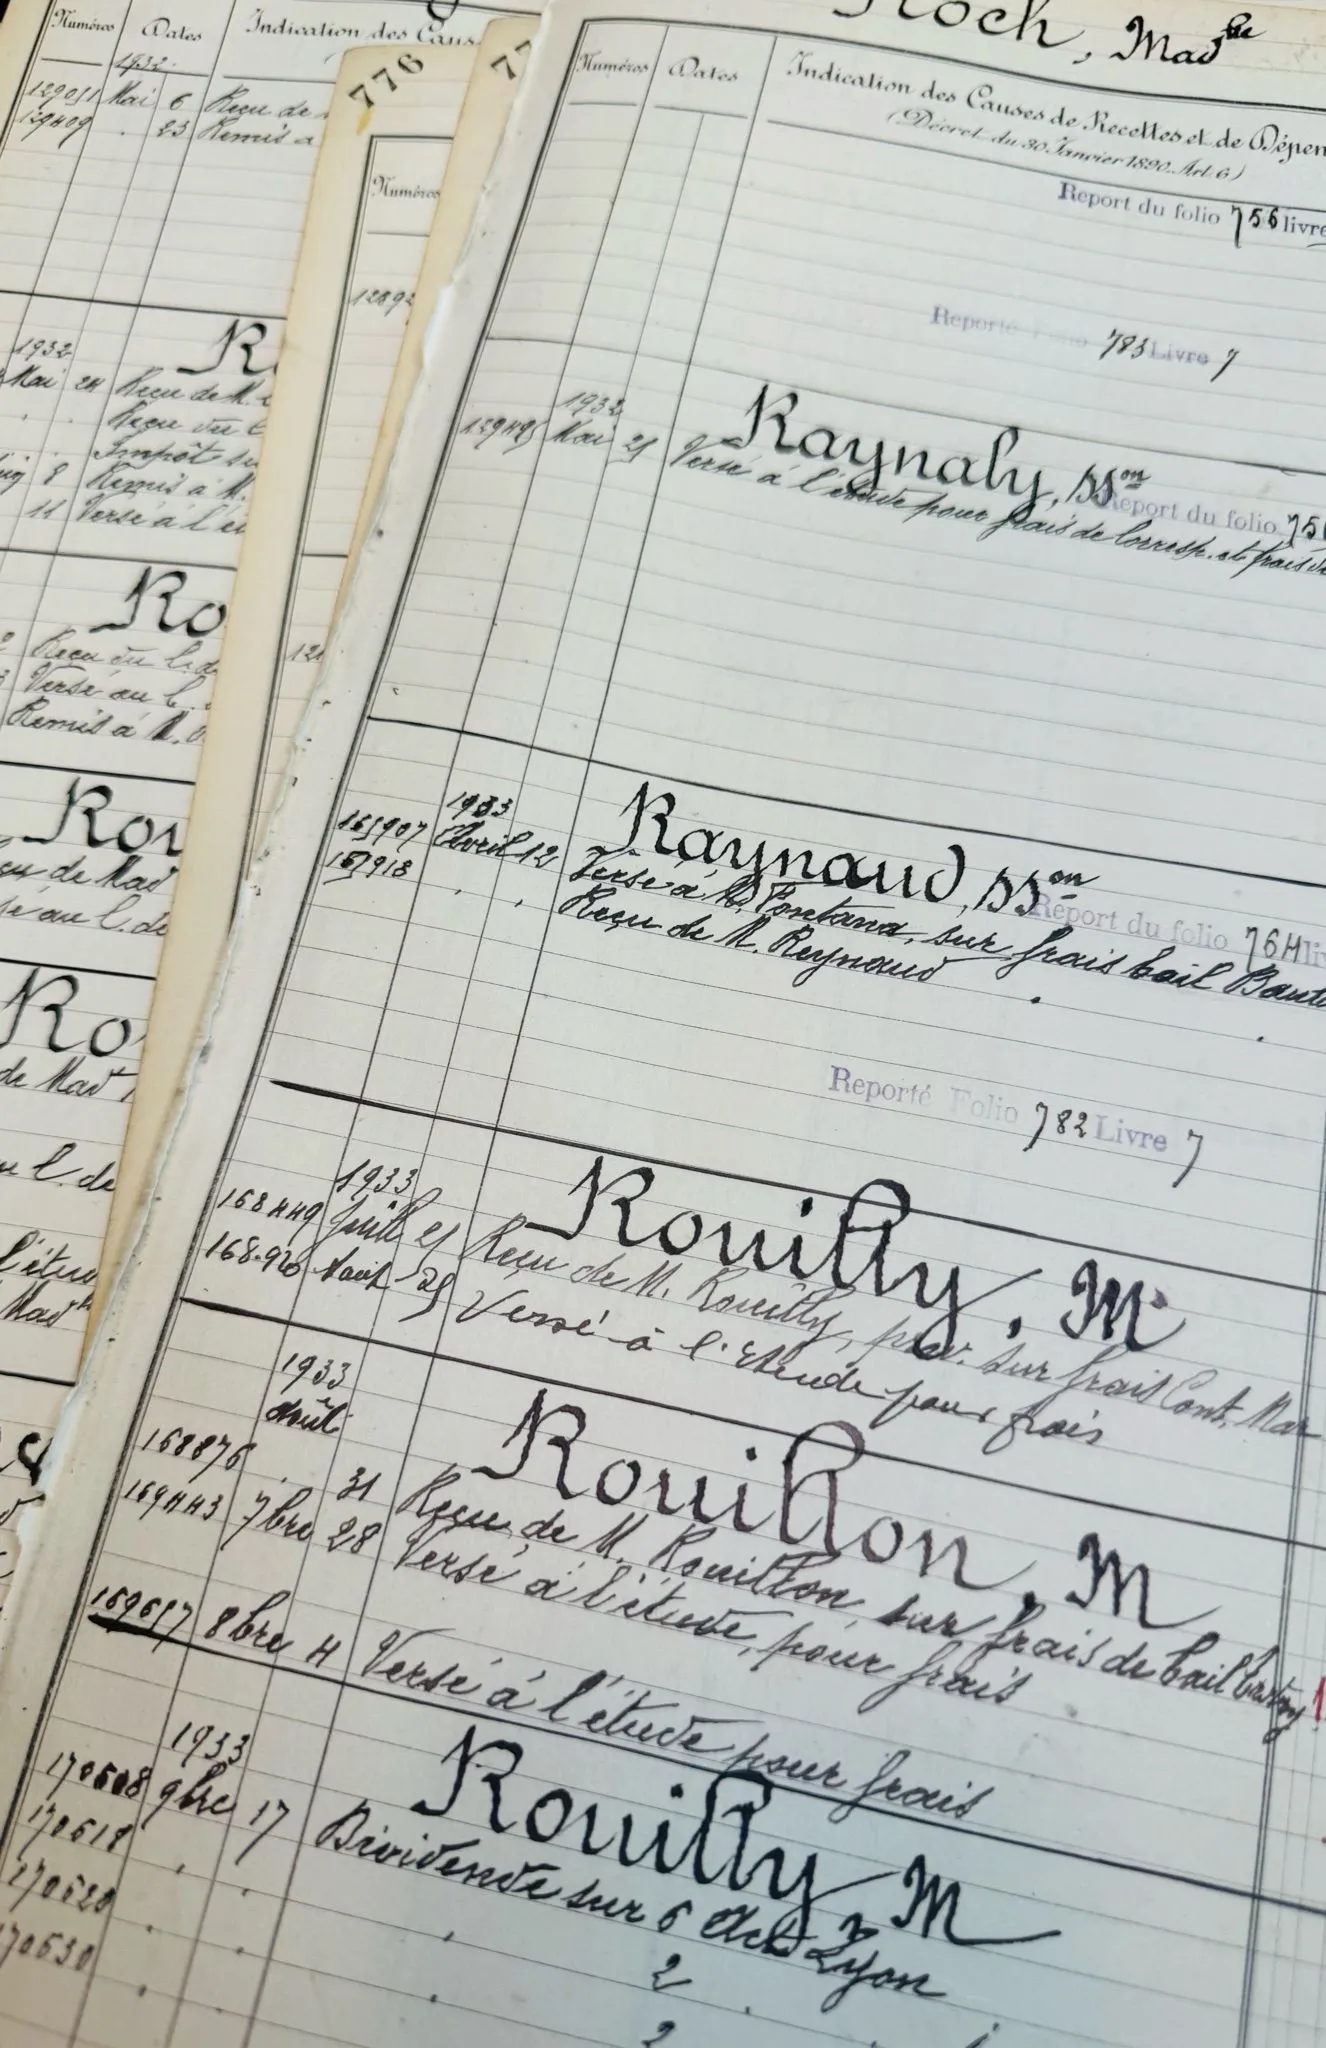 Numéros Dates Indication des Caus
1932
129051 Mai 6 Reçu de
129409 . 23 Remis a
1932
Mai 24 Reçu de M.
. . Reçu du C
Impôt su
8 Remis à M.
11 Versé à l'é
Ro
Reçu du C. d
Versé au C.
Remis à M.
Rou
de Mad
au C. de
Ro
de Mad
C. de
l'étu
Mad
776
Numéros
12892
77
Roch, Mad
Numéros Dates Indication des Causes de Recettes et de Dépen
(Décret du 30 Janvier 1890. Art. 6)
Report du folio 756 livre
Reporté Folio 783 Livre 7
Raynaly, sson
1932
129495 Mai 25 Versé à l'étude pour frais de corresp. et frais
Report du folio 756
Raynaud, sson
1933
165907 Avril 12 Versé à M. Fontana, sur frais bail
165918 . . Reçu de M. Reynaud
Report du folio 764 li
Reporté Folio 782 Livre 7
Rouilly, M
1933
168449 Juill 25 Reçu de M. Rouilly, prov. sur frais Cont. Mar
168.920 Aout 25 Versé à l'Etude pour frais
Rouillon, M
1933
Août
168876 . 31 Reçu de M. Rouillon, sur frais de bail
169443 7bre 28 Versé à l'étude, pour frais
169657 8bre 4 Versé à l'étude pour frais
Rouilly, M
1933
170608 9bre 17 Dividende sur 6 Act Lyon
170618 . . . 2 .
170620 . . . 2
170630